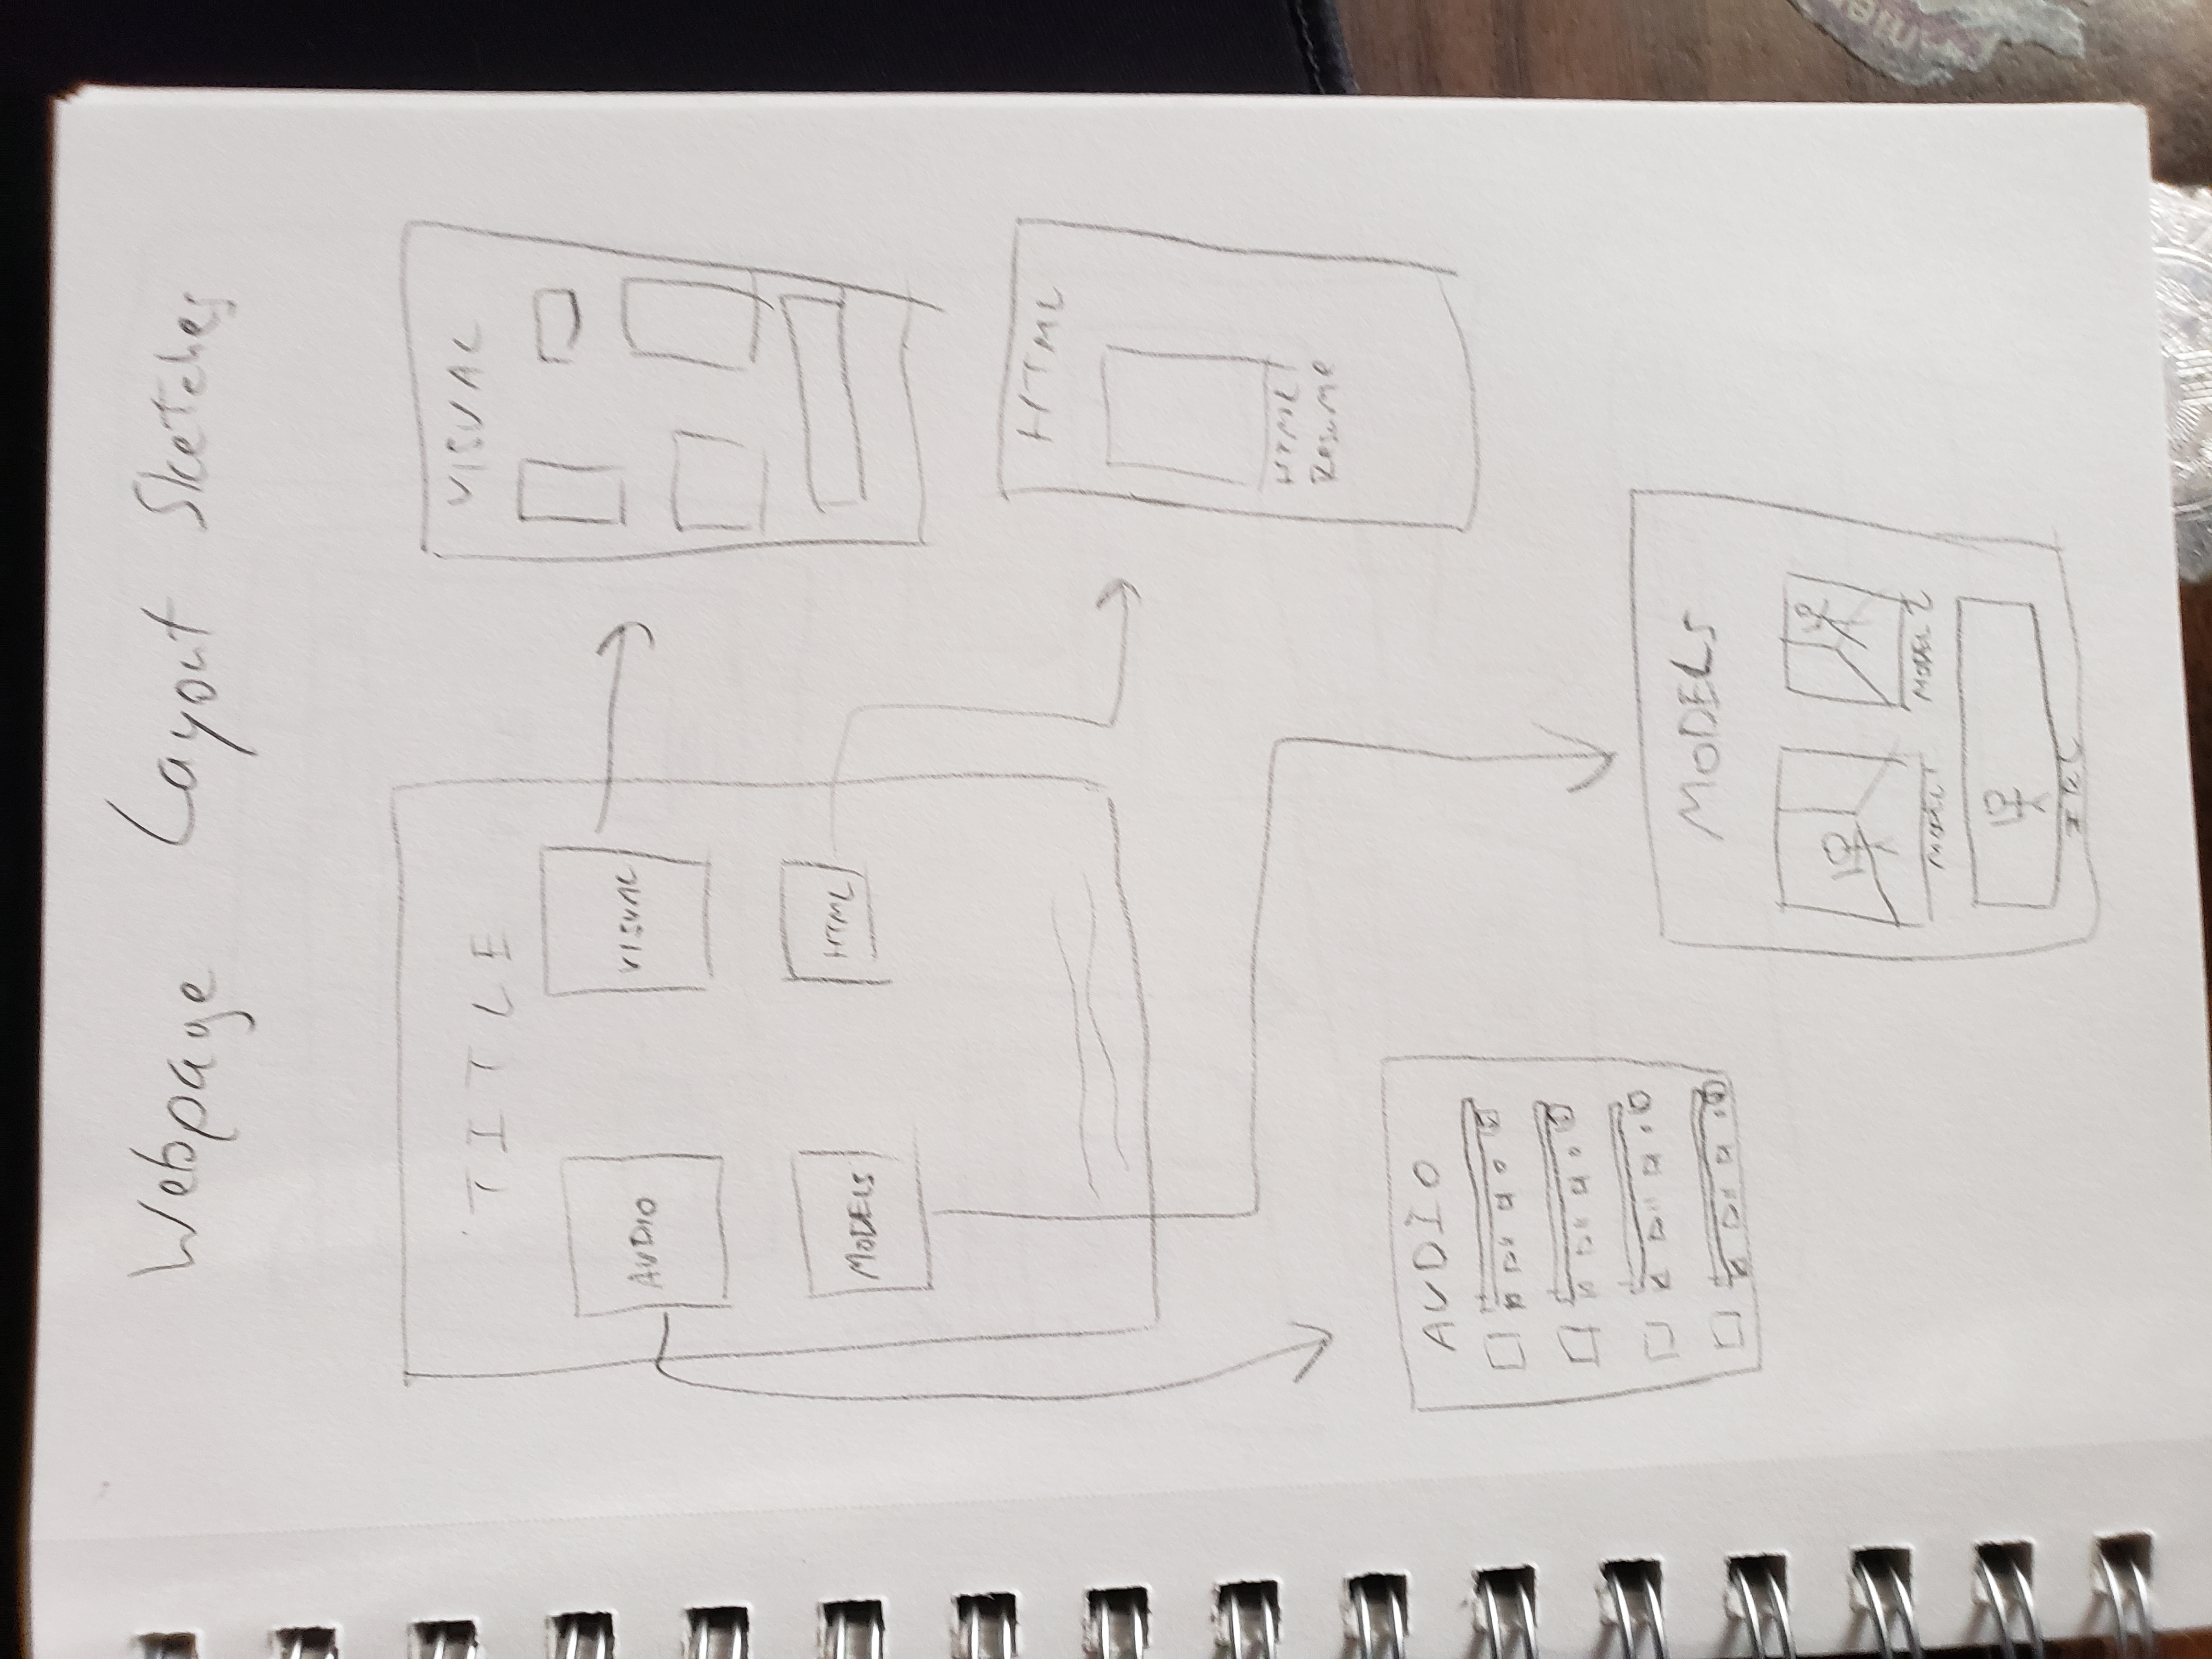 Webpage Layout Sketches
TITLE
AUDIO
VISUAL
MODELS
HTML
VISUAL
HTML
HTML
Resume
AUDIO
MODELS
MODEL 1
MODEL 2
IRL